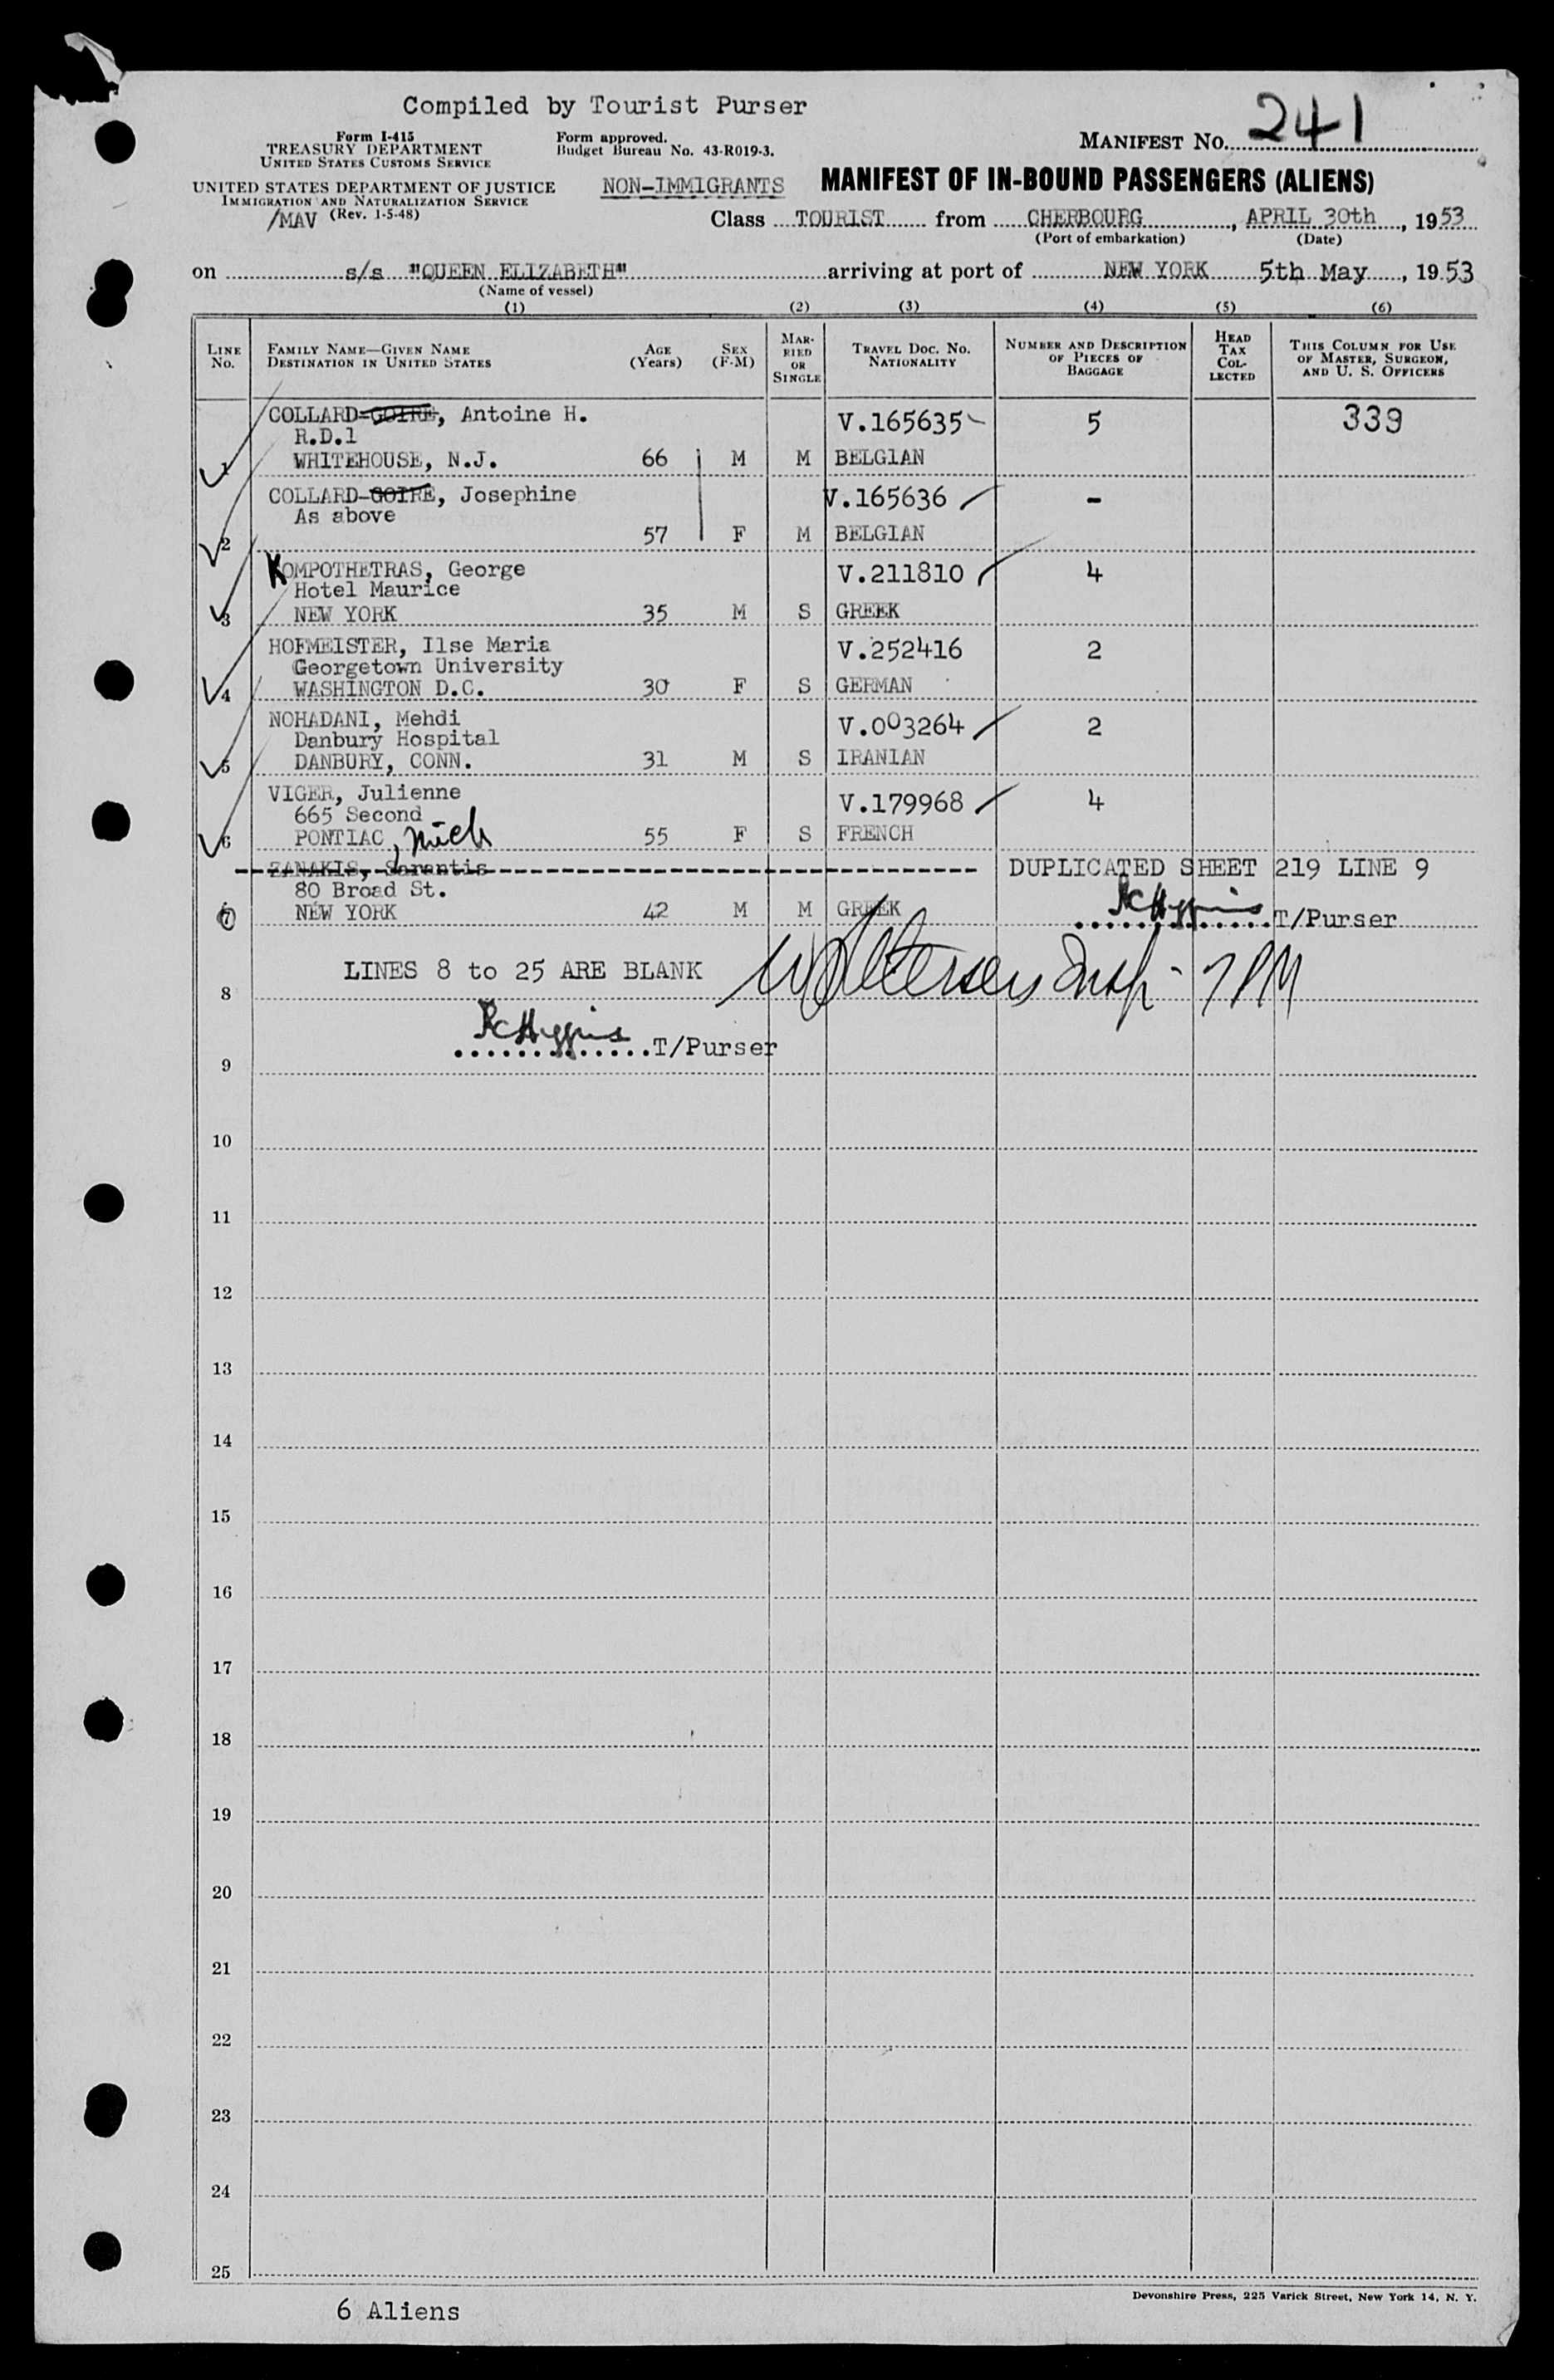 Compiled by Tourist Purser
Form I-415
TREASURY DEPARTMENT
UNITED STATES CUSTOMS SERVICE
UNITED STATES DEPARTMENT OF JUSTICE
IMMIGRATION AND NATURALIZATION SERVICE
/MAV (Rev. 1-5-48)
Form approved.
Budget Bureau No. 43-R019-3.
MANIFEST NO. 241
NON-IMMIGRANTS MANIFEST OF IN-BOUND PASSENGERS (ALIENS)
Class TOURIST from CHERBOURG, APRIL 30th, 1953
(Port of embarkation) (Date)
on s/s "QUEEN ELIZABETH" arriving at port of NEW YORK 5th May, 1953
(Name of vessel)
(1) (2) (3) (4) (5) (6)
LINE NO. FAMILY NAME—GIVEN NAME DESTINATION IN UNITED STATES AGE (Years) SEX (F-M) MARRIED OR SINGLE TRAVEL DOC. NO. NATIONALITY NUMBER AND DESCRIPTION OF PIECES OF BAGGAGE HEAD TAX COLLECTED THIS COLUMN FOR USE OF MASTER, SURGEON, AND U. S. OFFICERS
COLLARD-GOIRE, Antoine H. V.165635 5 339
R.D.1
1 WHITEHOUSE, N.J. 66 M M BELGIAN
COLLARD-GOIRE, Josephine V.165636 -
As above
2 57 F M BELGIAN
KOMPOTHETRAS, George V.211810 4
Hotel Maurice
3 NEW YORK 35 M S GREEK
HOFMEISTER, Ilse Maria V.252416 2
Georgetown University
4 WASHINGTON D.C. 30 F S GERMAN
NOHADANI, Mehdi V.003264 2
Danbury Hospital
5 DANBURY, CONN. 31 M S IRANIAN
VIGER, Julienne V.179968 4
665 Second
6 PONTIAC, Mich 55 F S FRENCH
ZANAKIS, Sarantis DUPLICATED SHEET 219 LINE 9
80 Broad St.
7 NEW YORK 42 M M GREEK RC Higgins T/Purser
LINES 8 to 25 ARE BLANK Insp - 7 PM
8
RC Higgins T/Purser
9
10
11
12
13
14
15
16
17
18
19
20
21
22
23
24
25
Devonshire Press, 225 Varick Street, New York 14, N. Y.
6 Aliens